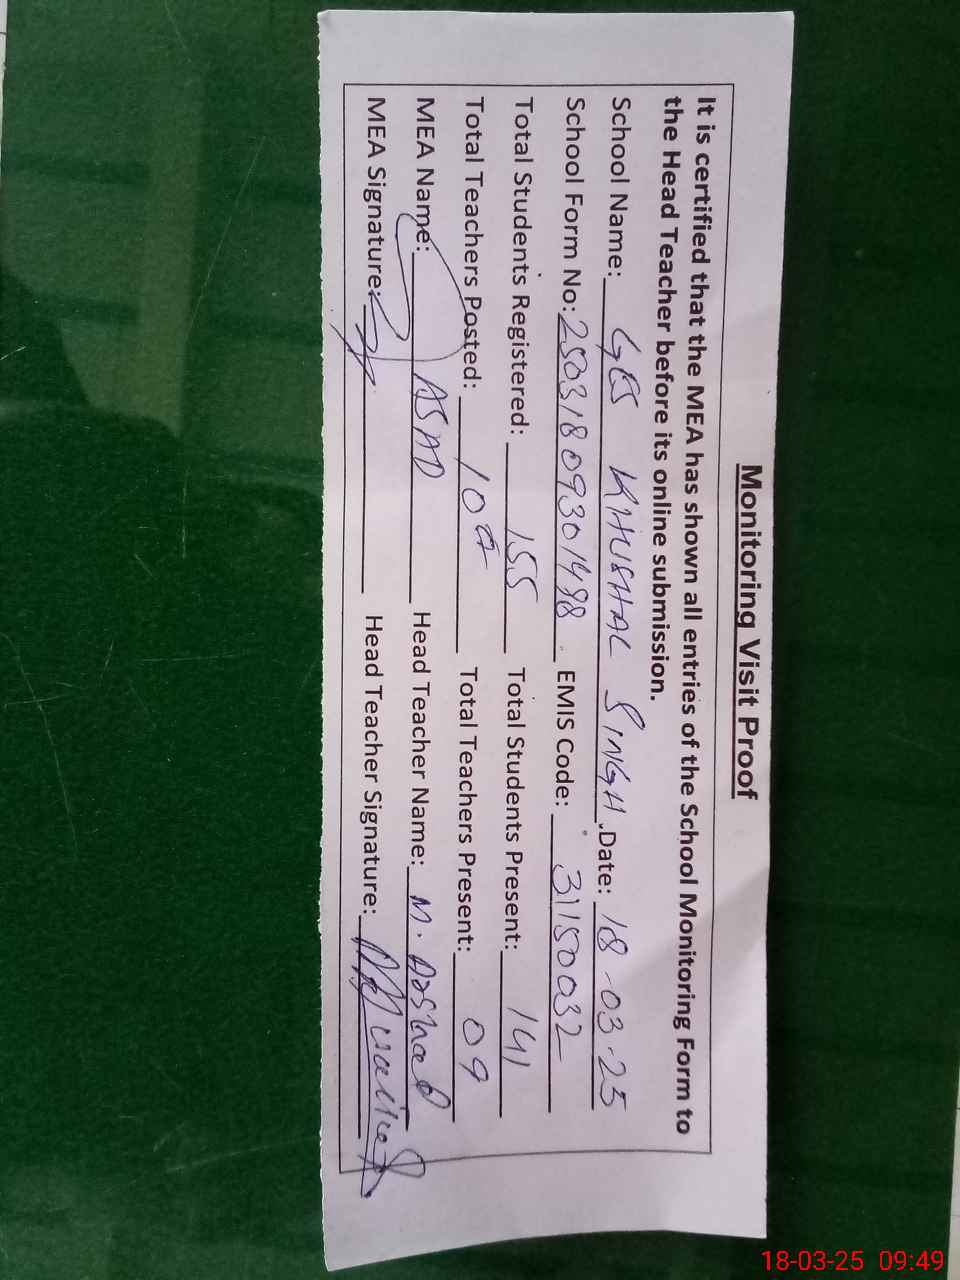 Monitoring Visit Proof
It is certified that the MEA has shown all entries of the School Monitoring Form to
the Head Teacher before its online submission.
School Name: GES KHUSHAL SINGH .Date: 18-03-25
School Form No: 25031809301498 EMIS Code: 31150032
Total Students Registered: 155 Total Students Present: 141
Total Teachers Posted: 10 Total Teachers Present: 09
MEA Name: ASAD Head Teacher Name: M. Arshad
MEA Signature: Head Teacher Signature:
18-03-25 09:49